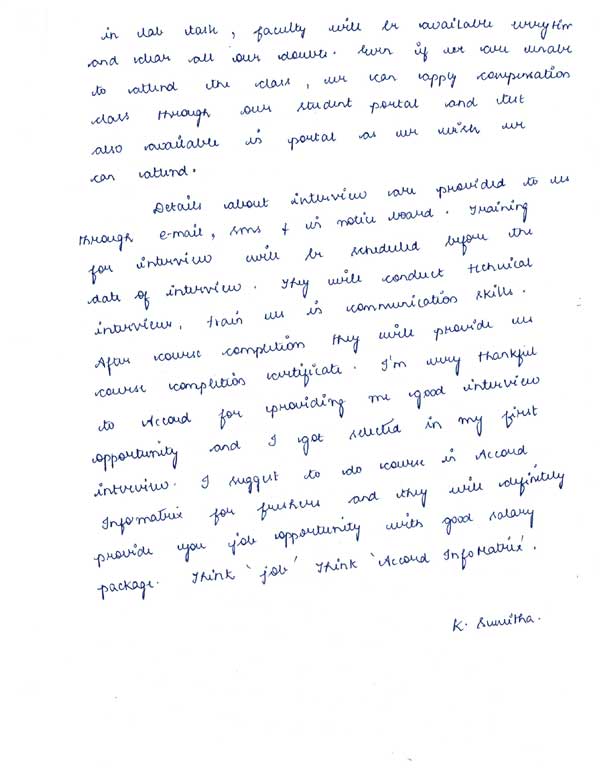 in lab task, faculty will be available everytim
and clear all our doubts. Even if we are unable
to attend the class, we can apply compensation
class through our student portal and test
also available in portal as we wish we
can attend.
Details about interview are provided to us
through e-mail, sms & in notice board. Training
for interview will be scheduled before the
date of interview. They will conduct technical
interviews, train us in communication skills.
After course completion they will provide us
course completion certificate. I'm very thankful
to Accord for providing me good interview
opportunity and I got selected in my first
interview. I suggest to do course in Accord
Infomatrix for freshers and they will definitely
provide you job opportunity with good salary
package. Think 'job' Think 'Accord InfoMatrix'.
K. Sumitha.